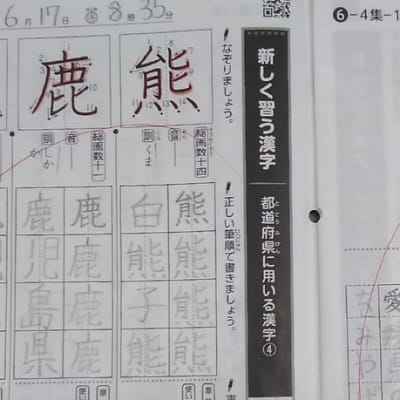 6月17日 8時35分
❻-4集-1
新しく習う漢字
都道府県に用いる漢字④
なぞりましょう。
熊
音
訓 くま
総画数十四
正しい筆順で書きましょう。
熊白
熊熊
熊子
熊熊
鹿
音
訓 しか か
総画数十一
鹿鹿
鹿児
鹿島
鹿県